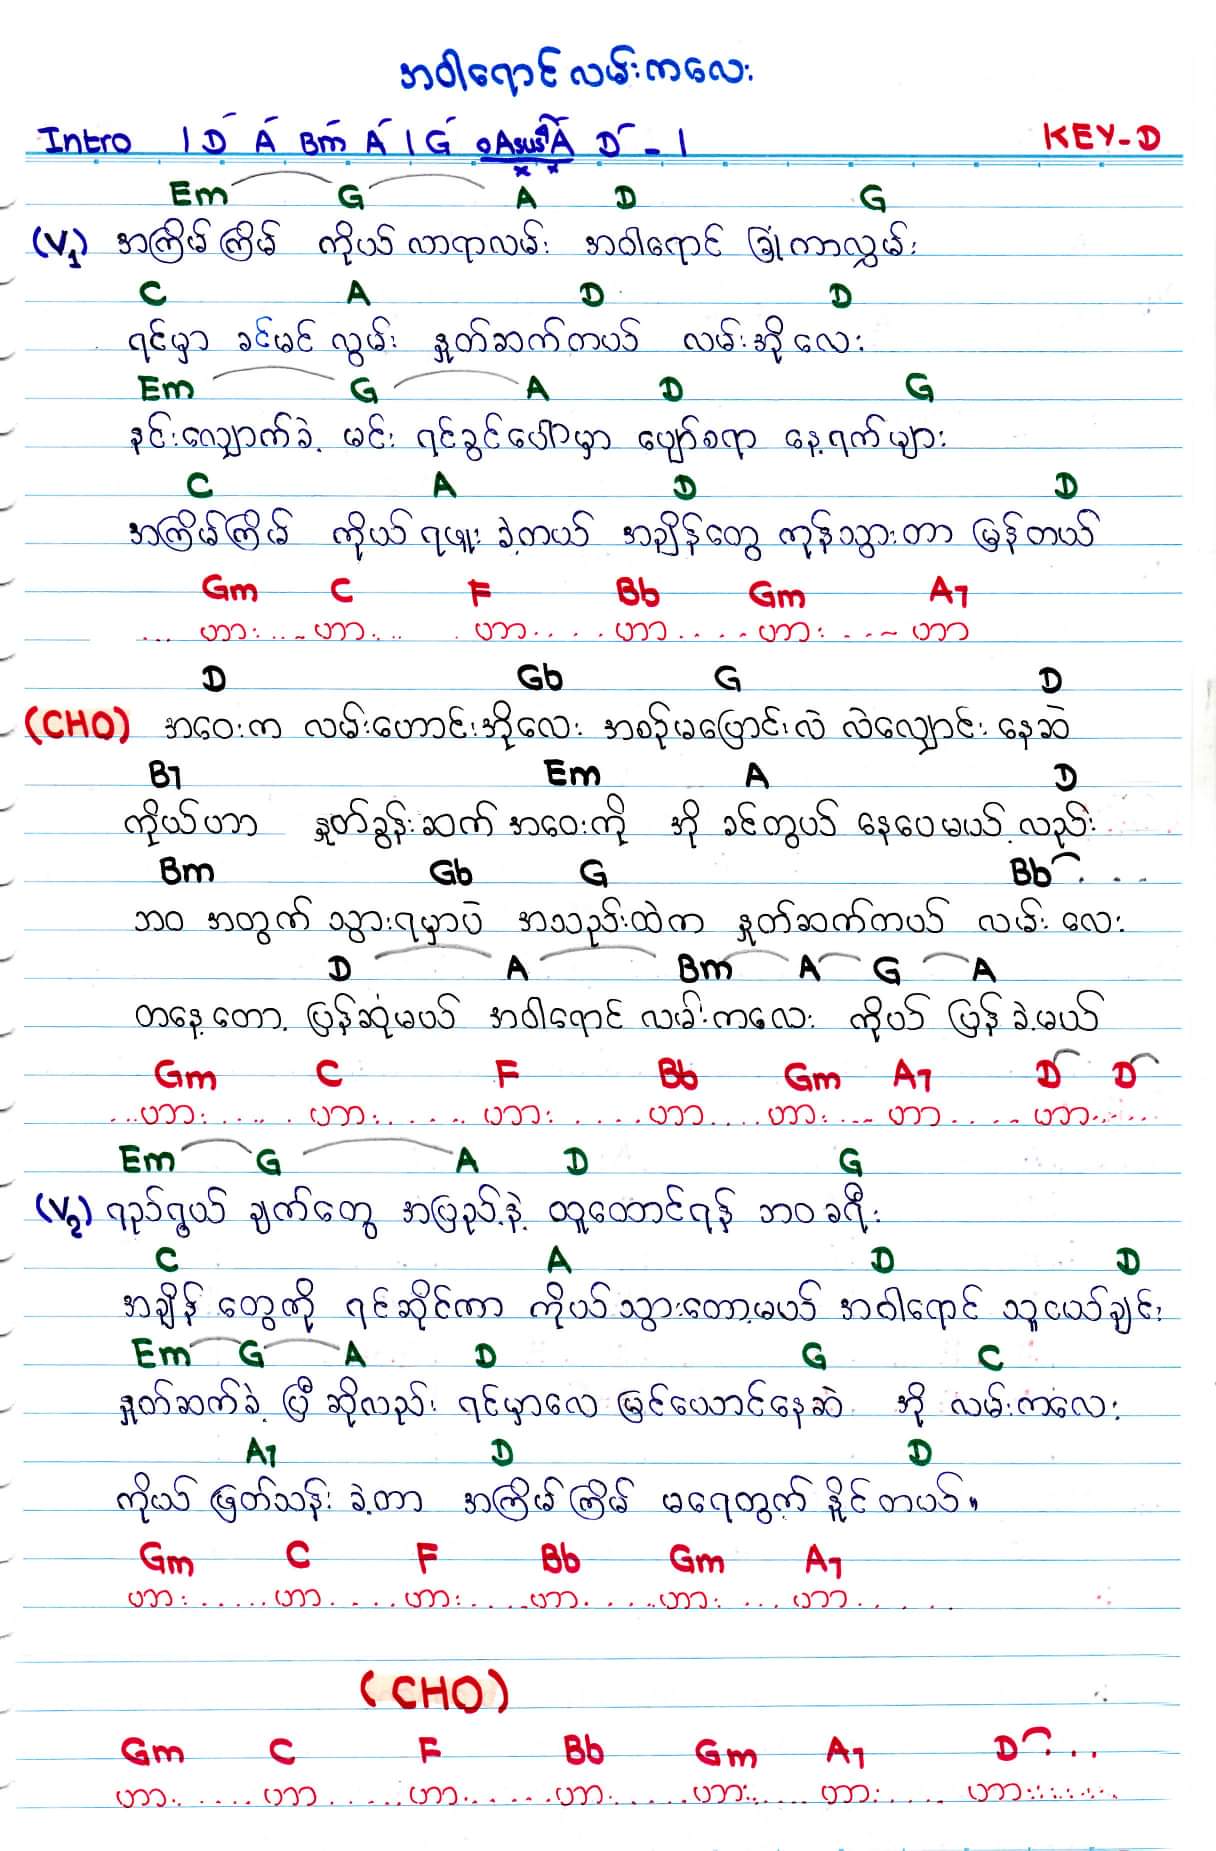 အဝါရောင်လမ်းကလေး
Intro | D A Bm A | G Asus4 A D - |
KEY-D
Em G A D G
(V1) အကြိမ်ကြိမ် ကိုယ်လာရာလမ်း အဝါရောင် ခြုံကာလွှမ်း
C A D D
ရင်မှာ ခင်မင်လွမ်း နှုတ်ဆက်တယ် လမ်းအိုလေး
Em G A D G
နင်းလျှောက်ခဲ့ မင်း ရင်ခွင်ပေါ်မှာ ပျော်စရာ နေ့ရက်များ
C A D D
အကြိမ်ကြိမ် ကိုယ်ရဖူးခဲ့တယ် အချိန်တွေ ကုန်သွားတာ မြန်တယ်
Gm C F Bb Gm A7
... ဟာ: ... ဟာ... . ဟာ... . ဟာ.... ဟာ: ... ဟာ
D Gb G D
(CHO) အဝေးက လမ်းဟောင်းအိုလေး အစဉ်မပြောင်းလဲ လဲလျှောင်း နေဆဲ
B7 Em A D
ကိုယ်ဟာ နှုတ်ခွန်းဆက် အဝေးကို အို ခင်တွယ် နေပေမယ့်လည်း
Bm Gb G Bb...
ဘဝ အတွက် သွားရမှာပဲ အသည်းထဲက နှုတ်ဆက်တယ် လမ်းလေး
D A Bm A G A
တနေ့တော့ ပြန်ဆုံမယ် အဝါရောင် လမ်းကလေး ကိုယ် ပြန်ခဲ့မယ်
Gm C F Bb Gm A7 D D
...ဟာ: ..... ဟာ: ..... ဟာ: .... ဟာ.... ဟာ: ... ဟာ..... ဟာ......
Em G A D G
(V2) ရည်ရွယ်ချက်တွေ အပြည့်နဲ့ ထူထောင်ရန် ဘဝခရီး
C A D D
အချိန်တွေကို ရင်ဆိုင်ကာ ကိုယ်သွားတော့မယ် အဝါရောင် သူငယ်ချင်း
Em G A D G C
နှုတ်ဆက်ခဲ့ပြီ ဆိုလည်း ရင်မှာလေ မြင်ယောင်နေဆဲ အို လမ်းကလေး
A7 D D
ကိုယ် ဖြတ်သန်းခဲ့တာ အကြိမ်ကြိမ် မရေတွက်နိုင်တယ်။
Gm C F Bb Gm A7
ဟာ: ..... ဟာ.... ဟာ: .... ဟာ..... ဟာ: ... ဟာ.....
(CHO)
Gm C F Bb Gm A7 D...
ဟာ: .... ဟာ ..... ဟာ..... ဟာ..... ဟာ: ... ဟာ: .... ဟာ: ......